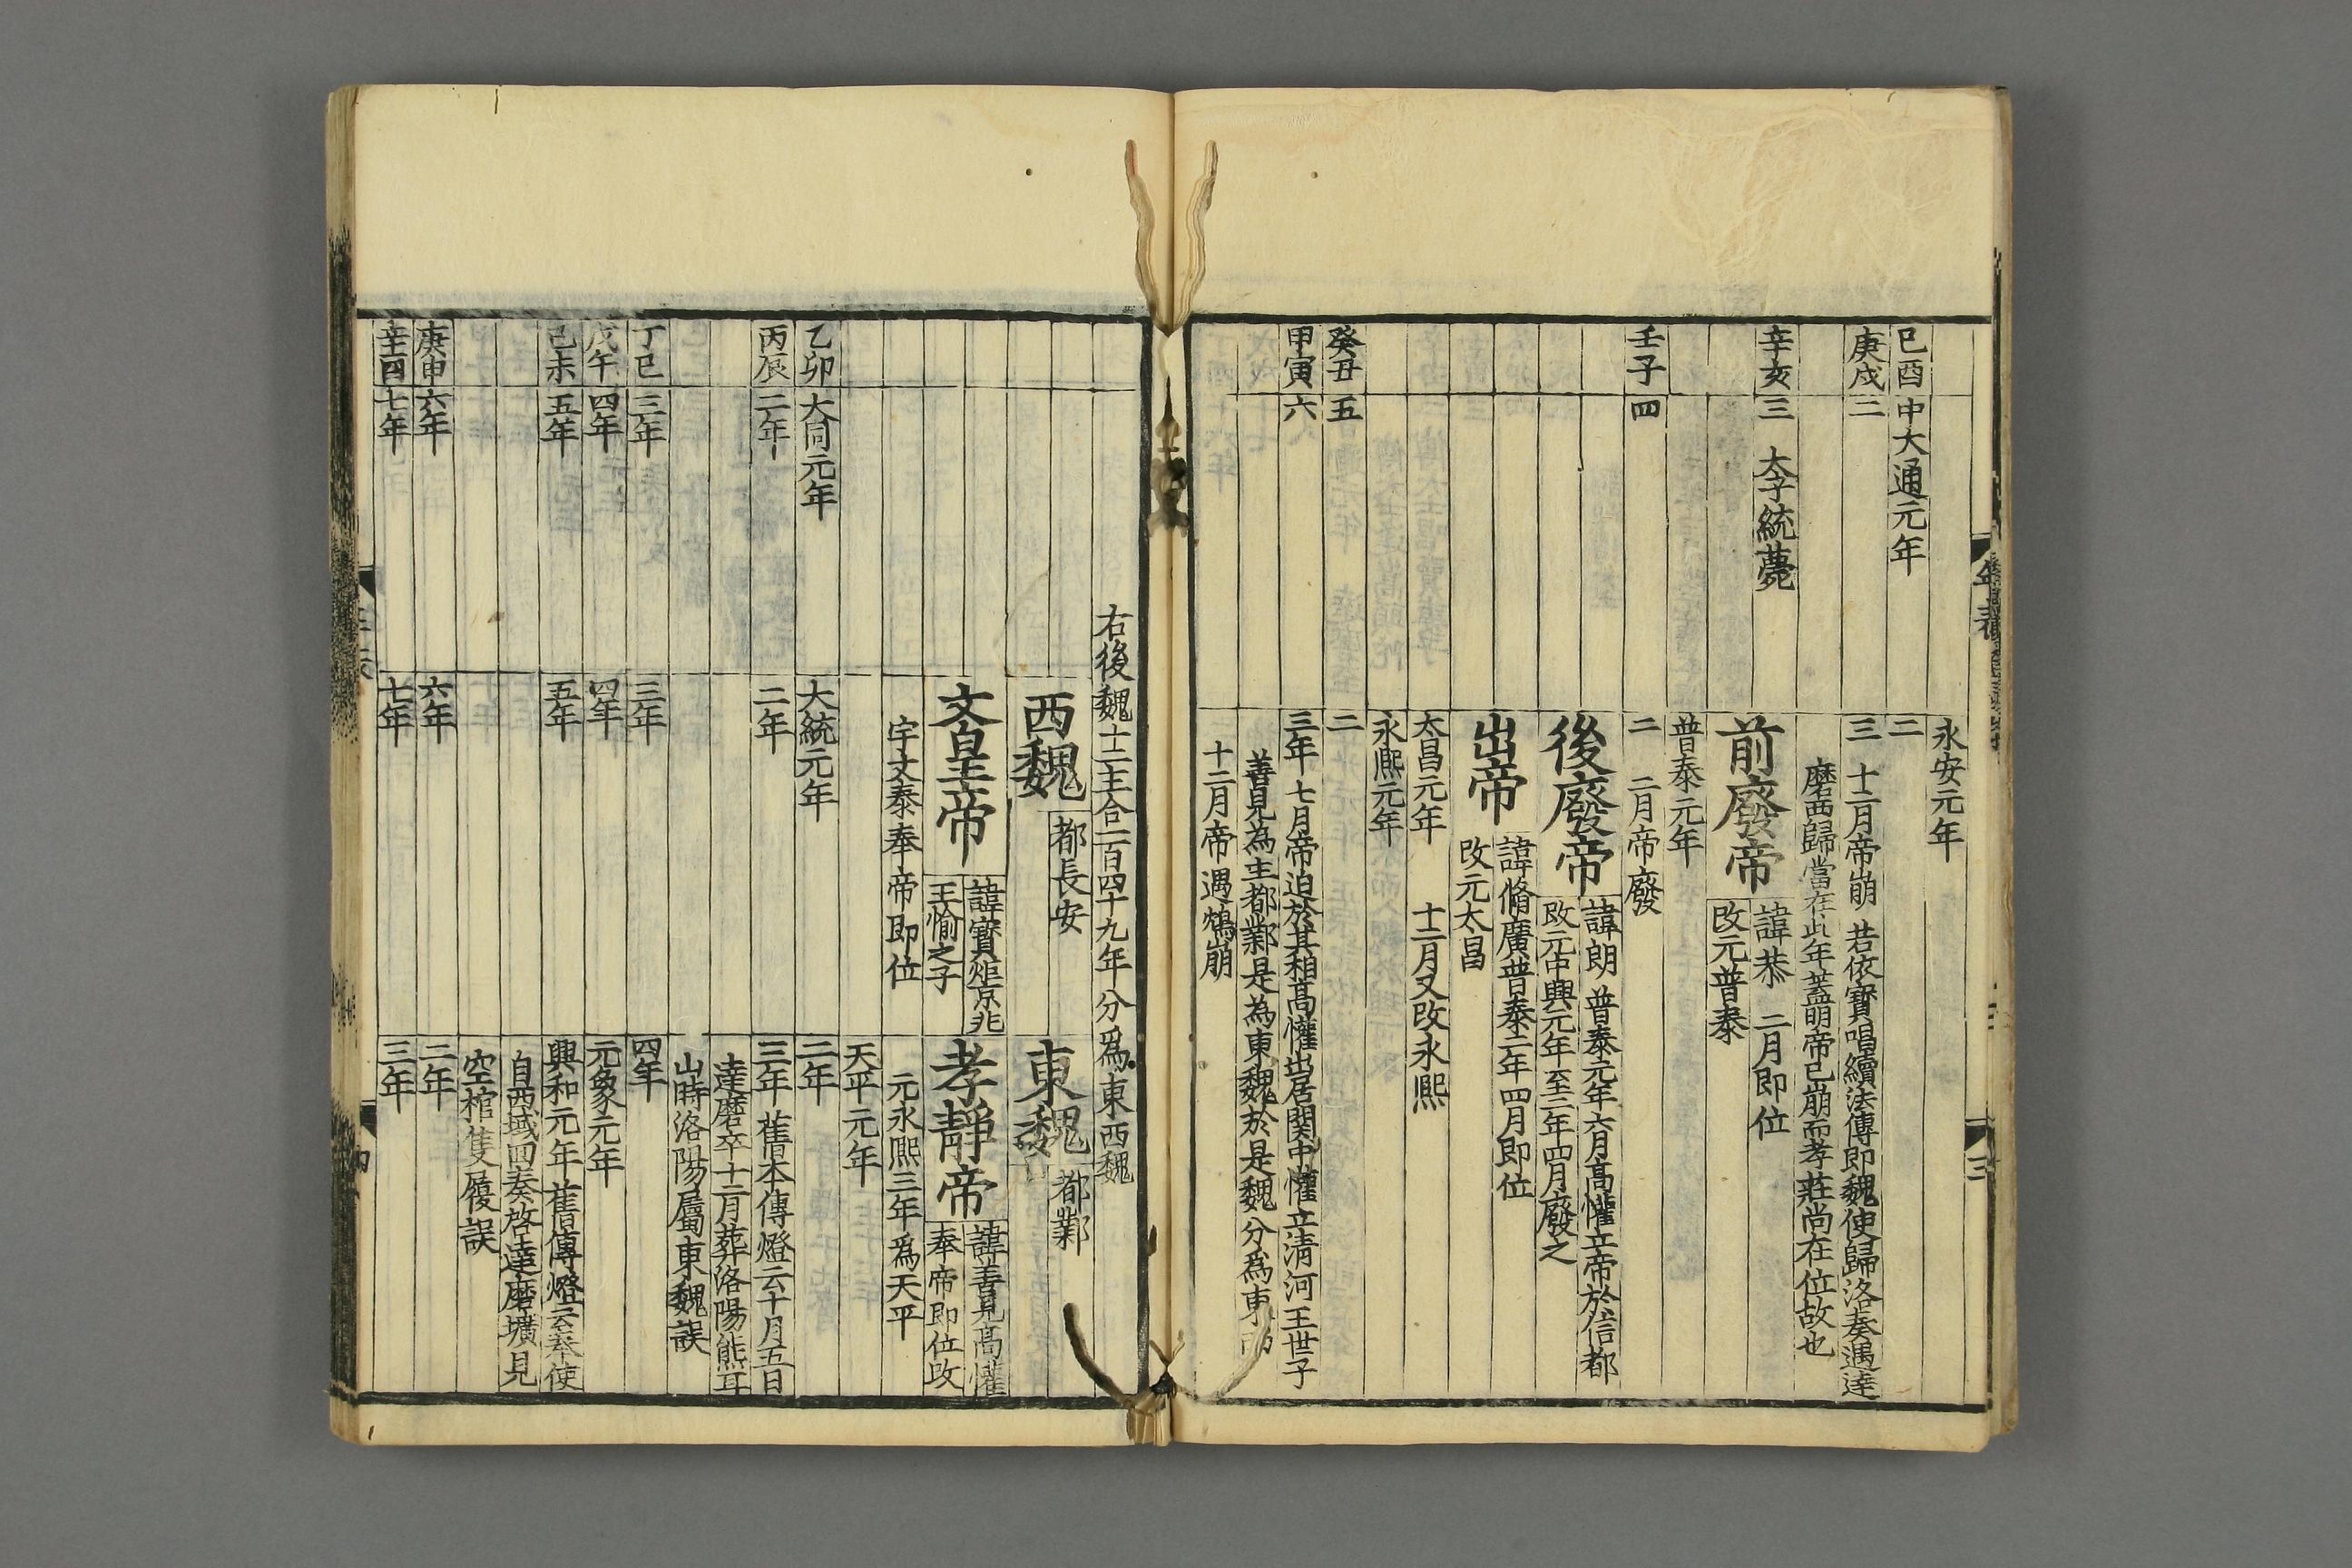 永安元年
己酉 中大通元年 二
庚戌 二 三 十二月帝崩 若依寶唱續法傳即魏使歸洛奏遇達
磨西歸當在此年蓋明帝已崩而孝莊尚在位故也
辛亥 三 太子統薨 諱恭 二月即位
前廢帝 改元普泰
普泰元年
壬子 四 二 二月帝廢
後廢帝 諱朗 普泰元年六月高懽立帝於信都
改元中興元年至二年四月廢之
出帝 諱脩廣普泰二年四月即位
改元太昌
太昌元年 十二月又改永熙
永熙元年
癸丑 五 二
甲寅 六 三年 七月帝迫於其相高懽出居関中懽立清河王世子
善見為主都鄴是為東魏於是魏分為東西
十二月帝遇鴆崩
年表
三
右後魏十二主合一百四十九年分爲東西魏
西魏 都長安 東魏 都鄴
文皇帝 諱寶炬京兆
王愉之子 孝靜帝 諱善見高懽
奉帝即位改
宇文泰奉帝即位 元永熙三年爲天平
天平元年
乙卯 大同元年 大統元年 二年
丙辰 二年 二年 三年 舊本傳燈云十月五日
達磨卒十二月葬洛陽熊耳
山時洛陽屬東魏誤
丁巳 三年 三年 四年
戊午 四年 四年 元象元年
己未 五年 五年 興和元年 舊傳燈云奉使
自西域回奏啓達磨壙見
空棺隻履誤
庚申 六年 六年 二年
辛酉 七年 七年 三年